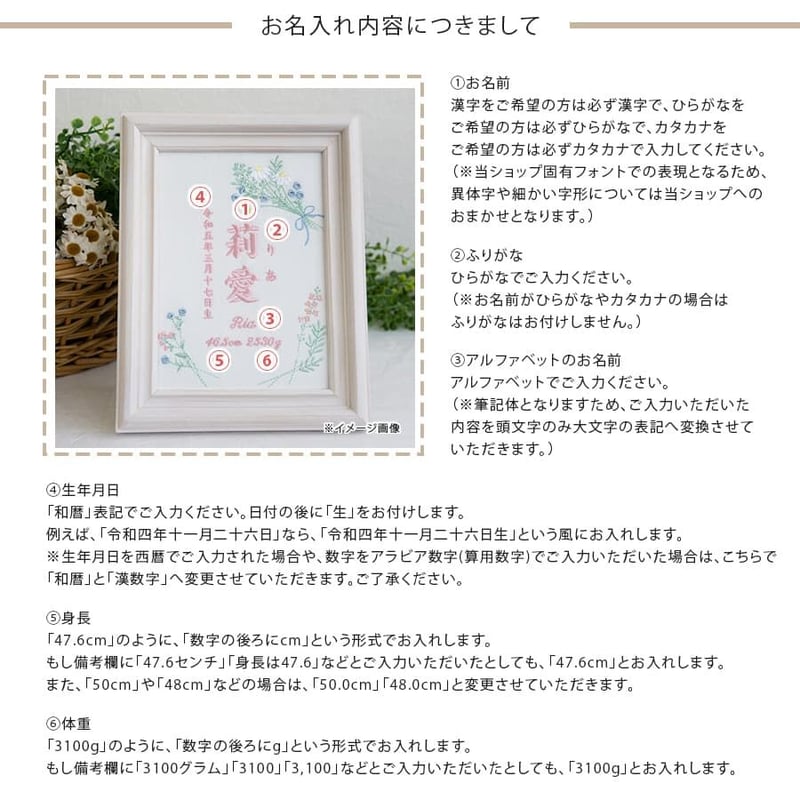 お名入れ内容につきまして
④
①
②
令和五年三月十七日生
莉愛
りあ
Ria
③
46.5cm 2530g
⑤
⑥
※イメージ画像
①お名前
漢字をご希望の方は必ず漢字で、ひらがなを
ご希望の方は必ずひらがなで、カタカナを
ご希望の方は必ずカタカナで入力してください。
（※当ショップ固有フォントでの表現となるため、
異体字や細かい字形については当ショップへの
おまかせとなります。）
②ふりがな
ひらがなでご入力ください。
（※お名前がひらがなやカタカナの場合は
ふりがなはお付けしません。）
③アルファベットのお名前
アルファベットでご入力ください。
（※筆記体となりますため、ご入力いただいた
内容を頭文字のみ大文字の表記へ変換させて
いただきます。）
④生年月日
「和暦」表記でご入力ください。日付の後に「生」をお付けします。
例えば、「令和四年十一月二十六日」なら、「令和四年十一月二十六日生」という風にお入れします。
※生年月日を西暦でご入力された場合や、数字をアラビア数字(算用数字)でご入力いただいた場合は、こちらで
「和暦」と「漢数字」へ変更させていただきます。ご了承ください。
⑤身長
「47.6cm」のように、「数字の後ろにcm」という形式でお入れします。
もし備考欄に「47.6センチ」「身長は47.6」などとご入力いただいたとしても、「47.6cm」とお入れします。
また、「50cm」や「48cm」などの場合は、「50.0cm」「48.0cm」と変更させていただきます。
⑥体重
「3100g」のように、「数字の後ろにg」という形式でお入れします。
もし備考欄に「3100グラム」「3100」「3,100」などとご入力いただいたとしても、「3100g」とお入れします。